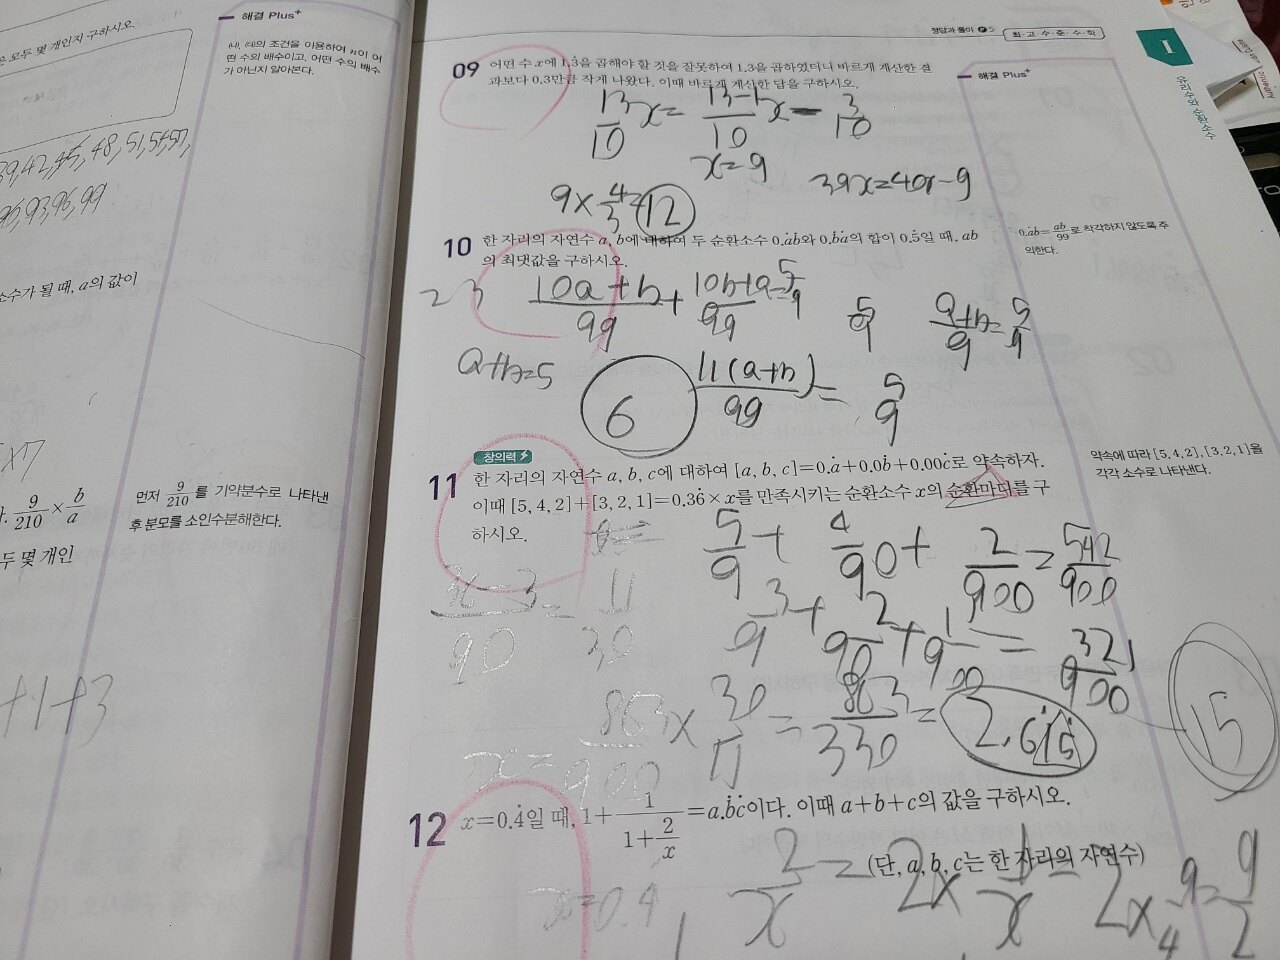 은 모두 몇 개인지 구하시오.
해결 Plus+
(나), (다)의 조건을 이용하여 n이 어
떤 수의 배수이고, 어떤 수의 배수
가 아닌지 알아본다.
39,42,45,48,51,54,57,
93,96,99
소수가 될 때, a의 값이
9/210 × b/a
두 몇 개인
먼저 9/210 를 기약분수로 나타낸
후 분모를 소인수분해한다.
+1+3
정답과 풀이 5
최·고·수·준·수·학
I
유리수와 순환소수
09 어떤 수 x에 1.3̇을 곱해야 할 것을 잘못하여 1.3을 곱하였더니 바르게 계산한 결
과보다 0.3만큼 작게 나왔다. 이때 바르게 계산한 답을 구하시오.
해결 Plus+
13/10 x = 13-1/10 x - 3/10
x=9
39x=40x-9
9× 4/3 = 12
10 한 자리의 자연수 a, b에 대하여 두 순환소수 0.ȧḃ와 0.ḃȧ의 합이 0.5̇일 때, ab
의 최댓값을 구하시오.
0.ȧḃ= ab/99 로 착각하지 않도록 주
의한다.
2 3
10a+b/99 + 10b+a/99 = 5/9
5/9
a+b/9 = 5/9
a+b=5
6
11(a+b)/99 = 5/9
창의력
11 한 자리의 자연수 a, b, c에 대하여 [a, b, c]=0.ȧ+0.0ḃ+0.00ċ로 약속하자.
이때 [5, 4, 2]+[3, 2, 1]=0.36̇×x를 만족시키는 순환소수 x의 순환마디를 구
하시오.
약속에 따라 [5, 4, 2], [3, 2, 1]을
각각 소수로 나타낸다.
5/9 + 4/90 + 2/900 = 542/900
36-3/90 = 11/30
3/9 + 2/90 + 1/900 = 321/900
x= 863/900 × 30/11 = 863/330 = 2.61̇5̇
15
12 x=0.4̇일 때, 1+ 1/(1+ 2/x) =a.ḃċ이다. 이때 a+b+c의 값을 구하시오.
(단, a, b, c는 한 자리의 자연수)
x=0.4̇
2/x = 2× 1/x = 2× 9/4 = 9/2